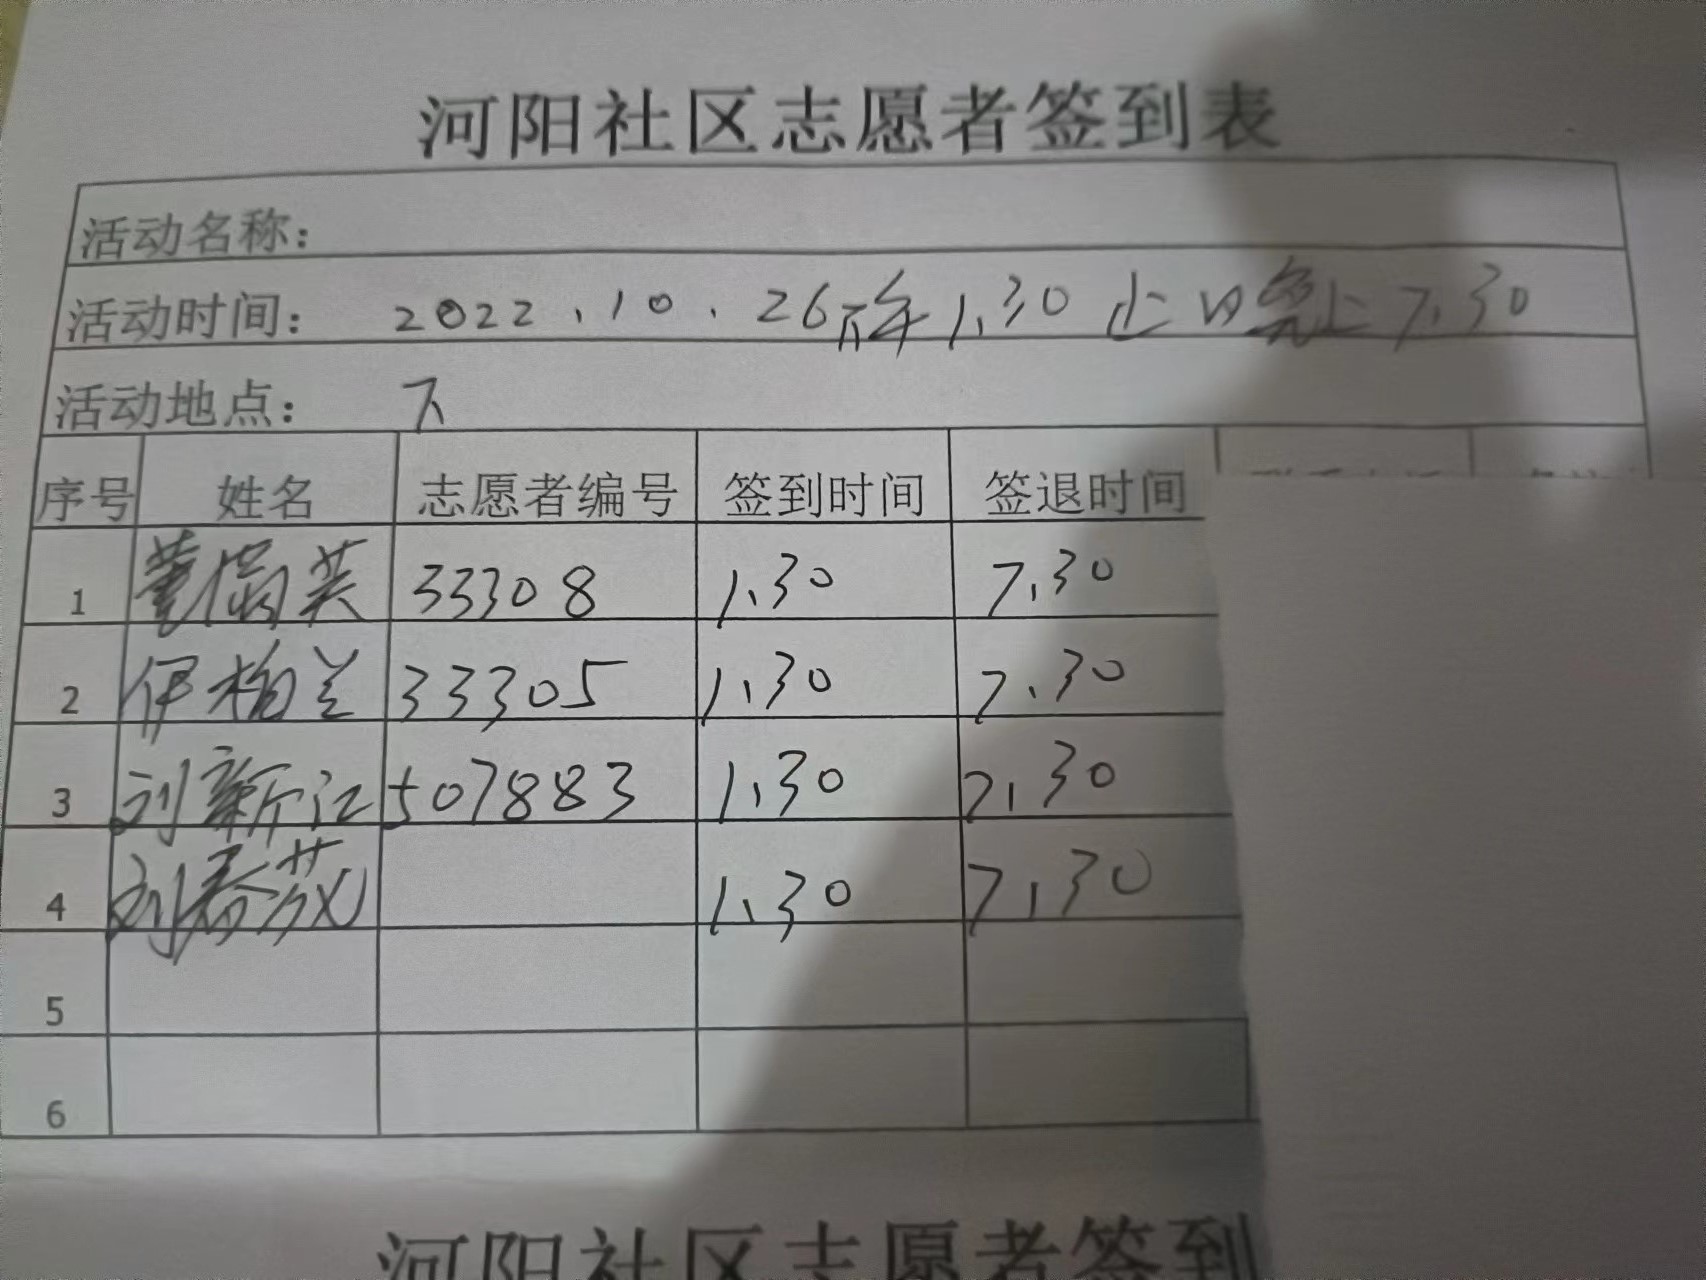 河阳社区志愿者签到表
活动名称：
活动时间： 2022.10.26下午1.30 止 晚上7.30
活动地点： 下
序号 姓名 志愿者编号 签到时间 签退时间
1 33308 1.30 7.30
2 伊柏兰 33305 1.30 7.30
3 刘新江 507883 1.30 7.30
4 刘春 1.30 7.30
5
6
河阳社区志愿者签到